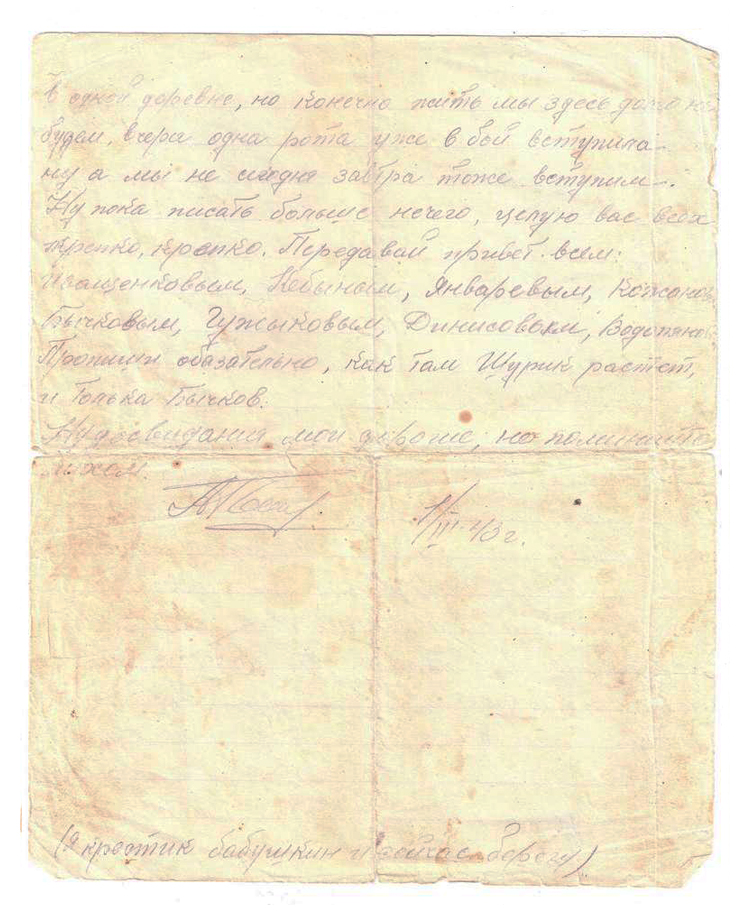 в одной деревне, но конечно жить мы здесь долго не
будем, вчера одна рота уже в бой вступила
ну а мы не сегодня завтра тоже вступим.
Ну пока писать больше нечего, целую вас всех
крепко, крепко. Передавай привет всем:
Иващенковым, Небыным, Январевым,
Бычковым, Гужыковым, Динисовым,
Пропиши обазательно, как там Шурик растет,
и Толька Бычков.
Ну досвидания мои дорогие, не поминайте
лихом.
1/III-43 г.
(А крестик бабушкин и сейчас берегу)